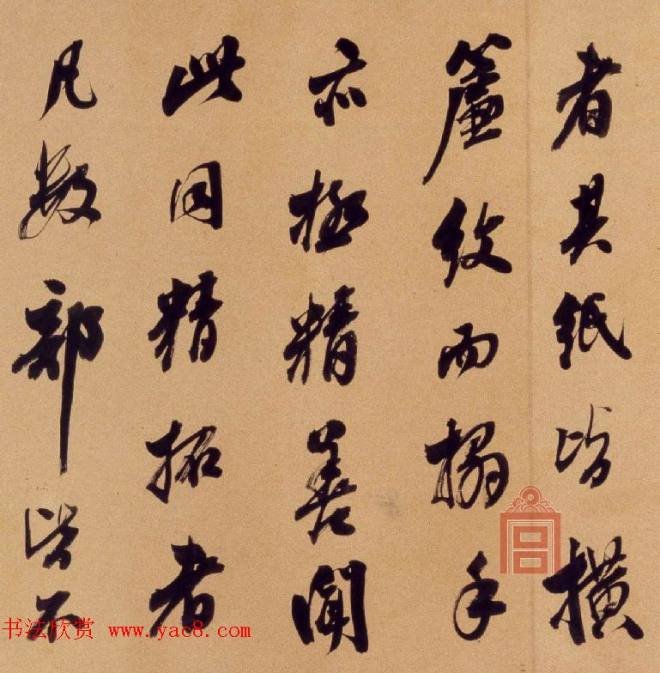 者其紙皆横
簾紋而搨手
亦極精善聞
此同精拓者
凡數部皆不
书法欣赏 www.yac8.com